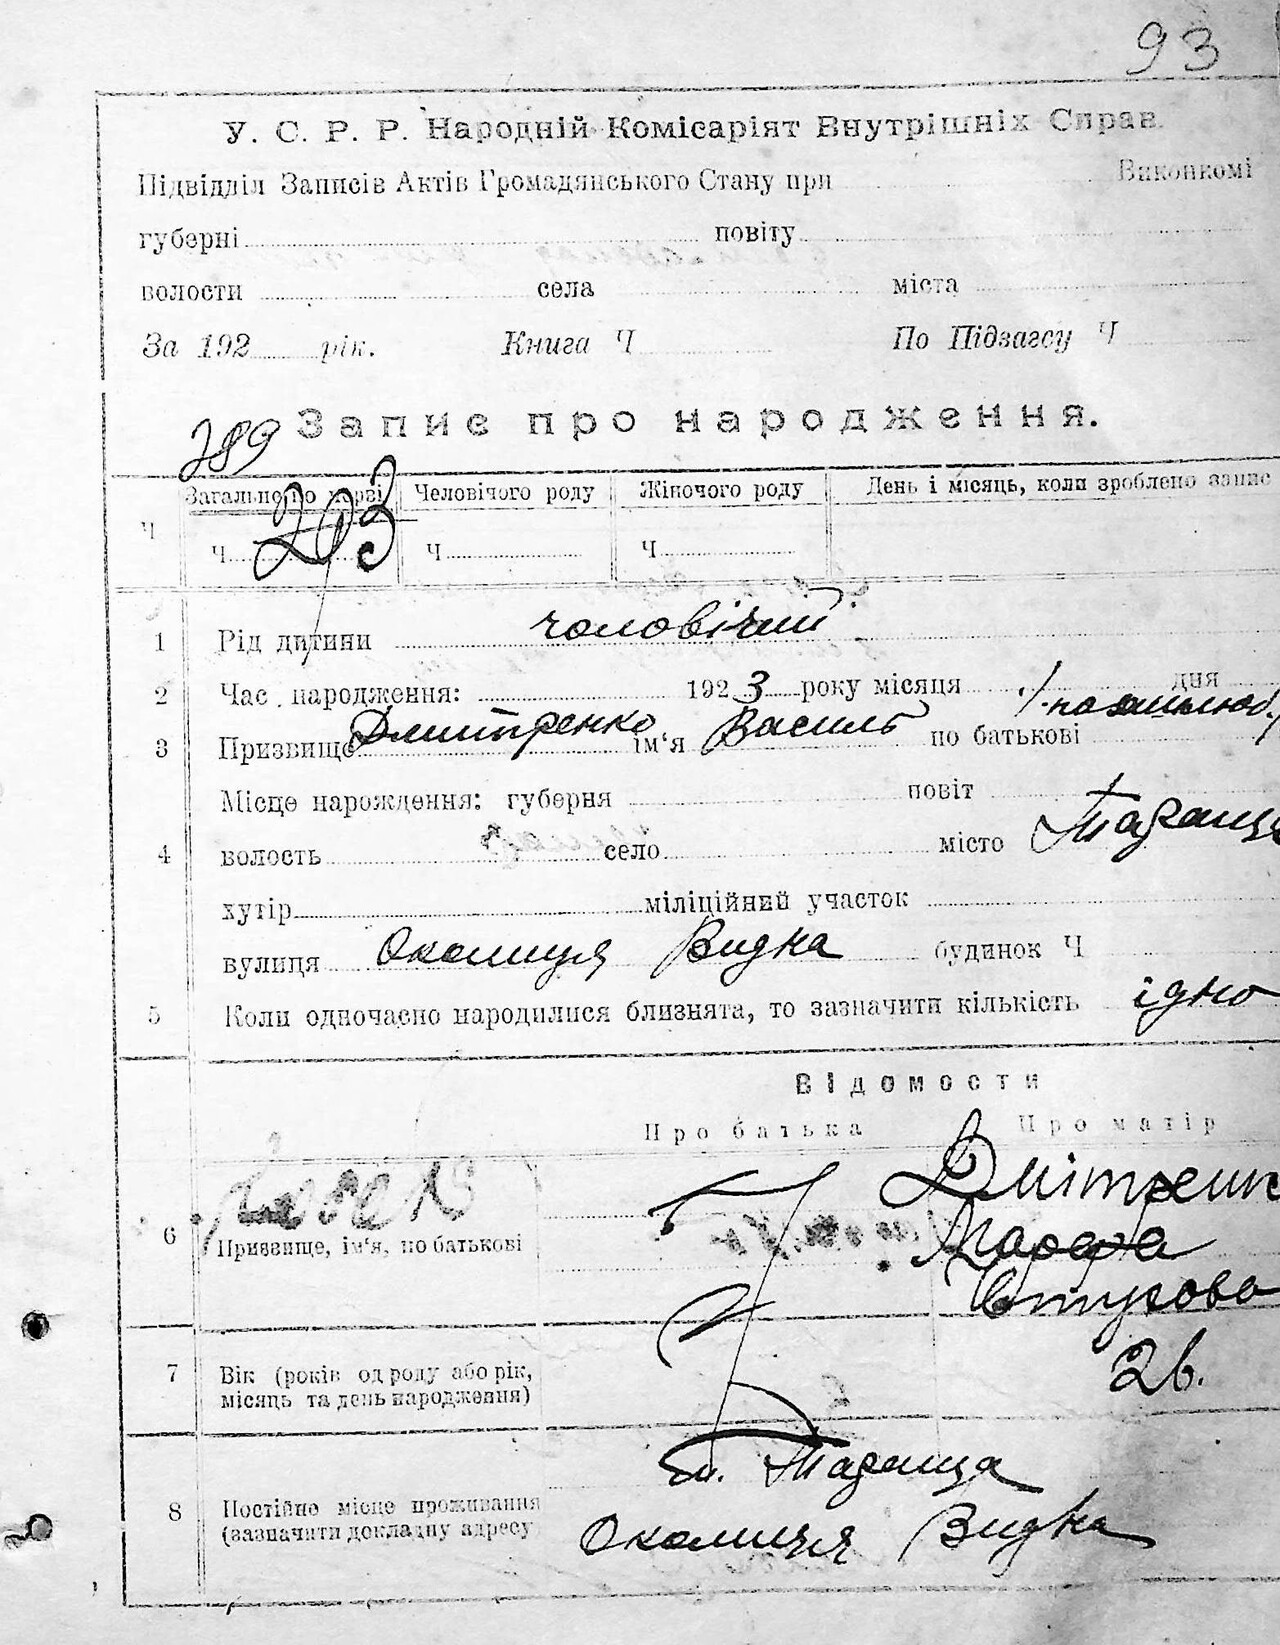 93
У. С. Р. Р. Народній Комісаріят Внутрішніх Справ.
Підвідділ Записів Актів Громадянського Стану при Виконкомі
губерні повіту
волости села міста
За 192 рік. Книга Ч По Підзагсу Ч
Запис про народження.
289
Загальне по черзі Человічого роду Жіночого роду День і місяць, коли зроблено запис
Ч Ч 203 Ч Ч
1 Рід дитини чоловічий
2 Час народження: 1923 року місяця дня
3 Призвище Дмитренко ім'я Василь по батькові
Місце народження: губерня повіт
4 волость село місто Тараща
хутір міліційний участок
вулиця Околиця Видна будинок Ч
5 Коли одночасно народилися близнята, то зазначити кількість ідно
Відомости
Про батька Про матір
6 Призвище, ім'я, по батькові
Дмітренк
Марфа
7 Вік (років од роду або рік, місяць та день народження) 26.
8 Постійне місце проживання (зазначити докладну адресу
м. Тараща
Околиця Видна